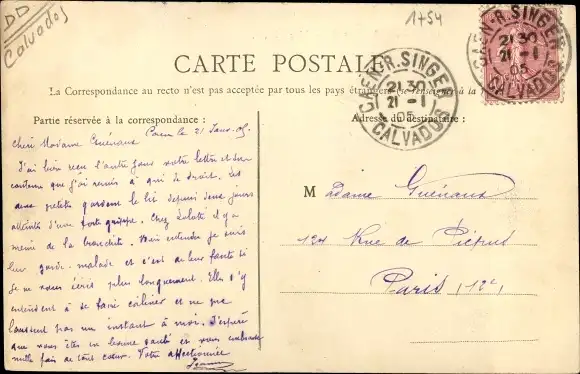 DD
Calvados
1754
CARTE POSTALE
La Correspondance au recto n'est pas acceptée par tous les pays étrangers (se renseigner à la
Partie réservée à la correspondance :
Adresse du destinataire :
CAEN-R. SINGER
21 30
21 -1
05
CALVADOS
CAEN-R. SINGER
21 30
21 -1
05
CALVADOS
Caen le 21 Janv. 05
Chère Madame Guéraux
J'ai bien reçu l'autre jour votre lettre et son
contenu que j'ai remis à qui de droit. Les
deux petites gardent le lit depuis deux jours
atteintes d'une forte grippe. Chez il y a
même de la bronchite. Bien entendu je suis
leur garde-malade et c'est de leur faute si
je ne vous écris plus longuement. Elles s'y
entendent à se faire câliner et ne me
laissent pas un instant à moi. J'espère
que vous êtes en bonne santé et vous embrasse
mille fois de tout coeur. Votre affectionnée
Madame Guéraux
124 Rue de Picpus
Paris (12e)